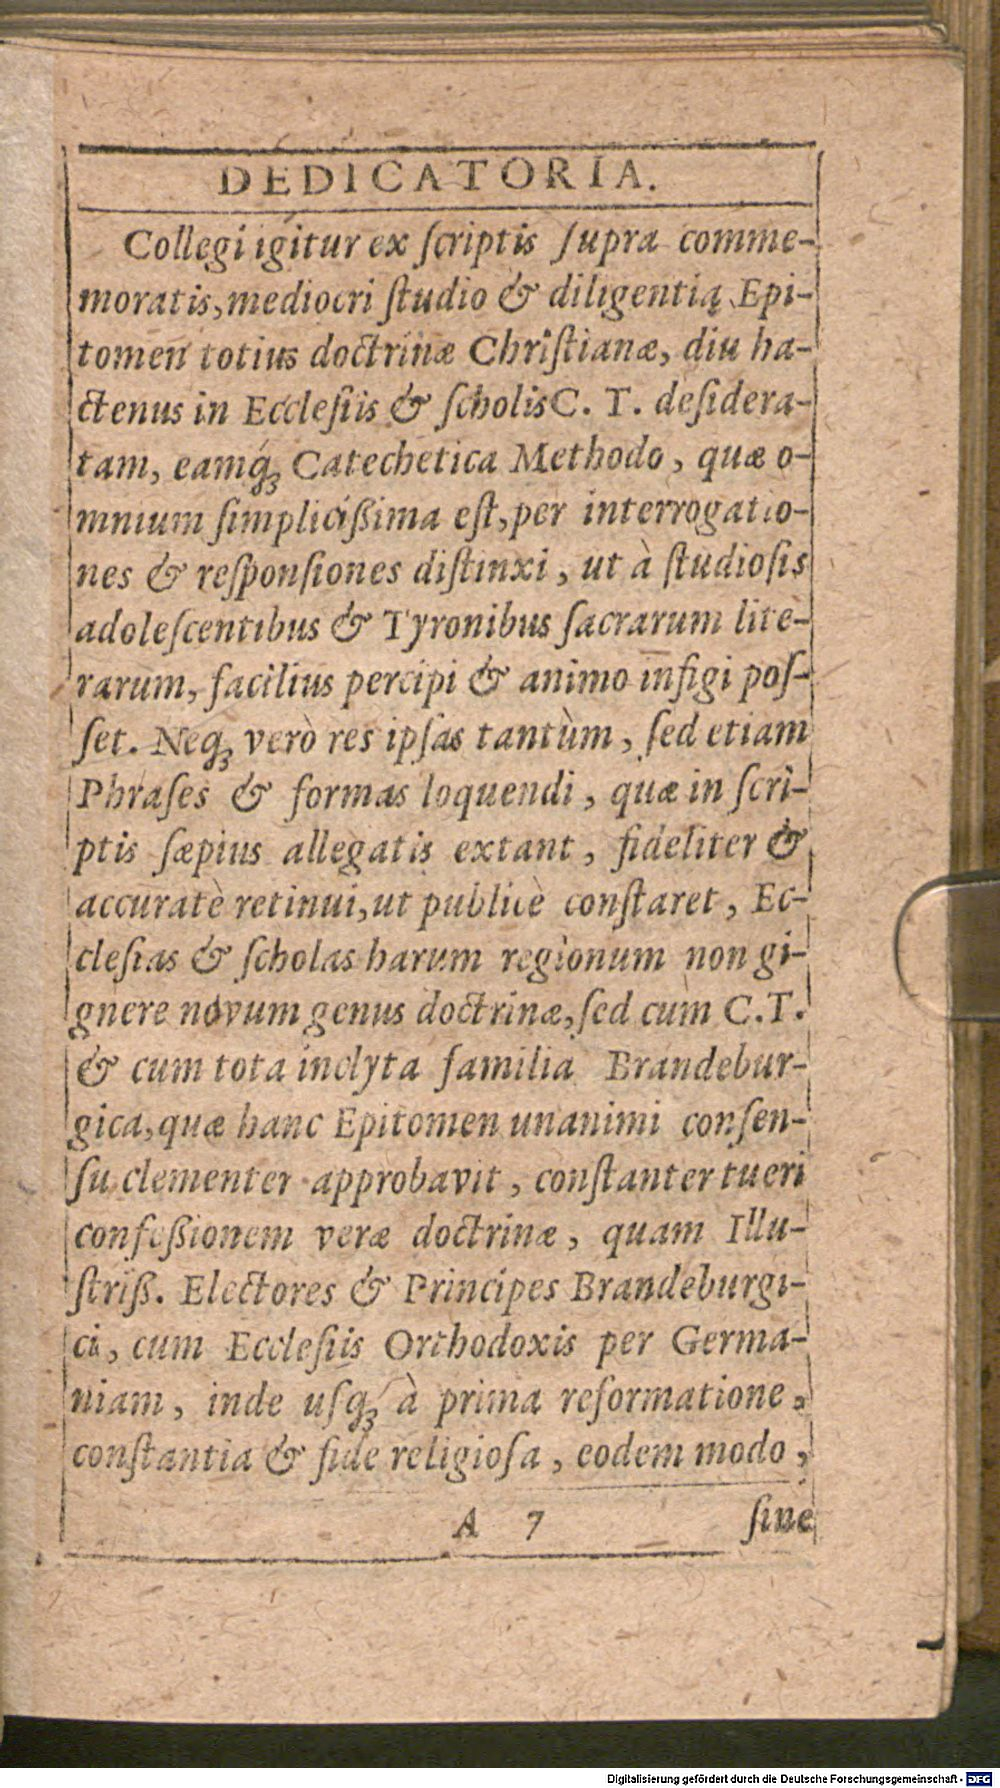 DEDICATORIA.
Collegi igitur ex ſcriptis ſupra comme-
moratis, mediocri ſtudio & diligentia Epi-
tomen totius doctrinæ Chriſtianæ, diu ha-
ctenus in Eccleſiis & ſcholis C. T. deſidera-
tam, eamq́ꝫ Catechetica Methodo, quæ o-
mnium ſimplicißima eſt, per interrogatio-
nes & reſponſiones diſtinxi, ut à ſtudioſis
adoleſcentibus & Tyronibus ſacrarum lite-
rarum, facilius percipi & animo infigi poſ-
ſet. Neqꝫ verò res ipſas tantùm, ſed etiam
Phraſes & formas loquendi, quæ in ſcri-
ptis ſæpius allegatis extant, fideliter &
accuratè retinui, ut publicè conſtaret, Ec-
cleſias & ſcholas harum regionum non gi-
gnere novum genus doctrinæ, ſed cum C.T.
& cum tota inclyta familia Brandebur-
gica, quæ hanc Epitomen unanimi conſen-
ſu clementer approbavit, conſtanter tueri
confeßionem veræ doctrinæ, quam Illu-
ſtriß. Electores & Principes Brandeburgi-
ci, cum Eccleſiis Orthodoxis per Germa-
niam, inde uſqꝫ à prima reformatione,
conſtantia & fide religioſa, eodem modo,
A 7 ſine
Digitalisierung gefördert durch die Deutsche Forschungsgemeinschaft - DFG